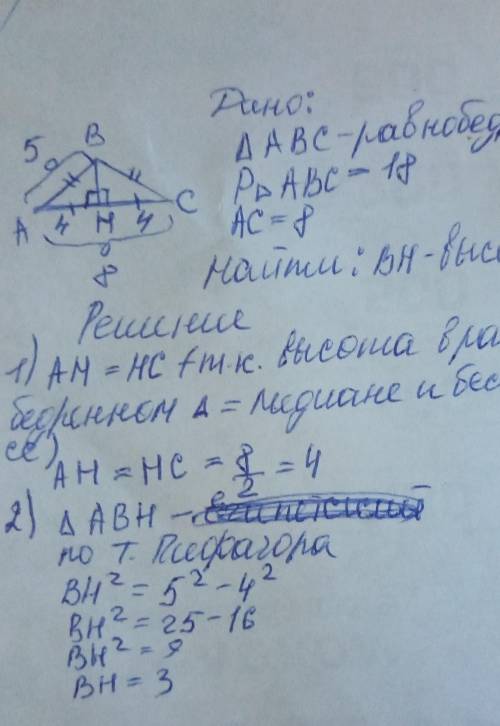 Дано:
5 B
Δ ABC - равнобед
P Δ ABC = 18
A 4 H 4 C
AC = 8
8
Найти: BH - высо
Решение
1) AH = HC (т.к. высота в ра
бедренном Δ = медиане и бес
се)
AH = HC = 8/2 = 4
2) Δ ABH -
по т. Пифагора
BH² = 5² - 4²
BH² = 25 - 16
BH² = 9
BH = 3